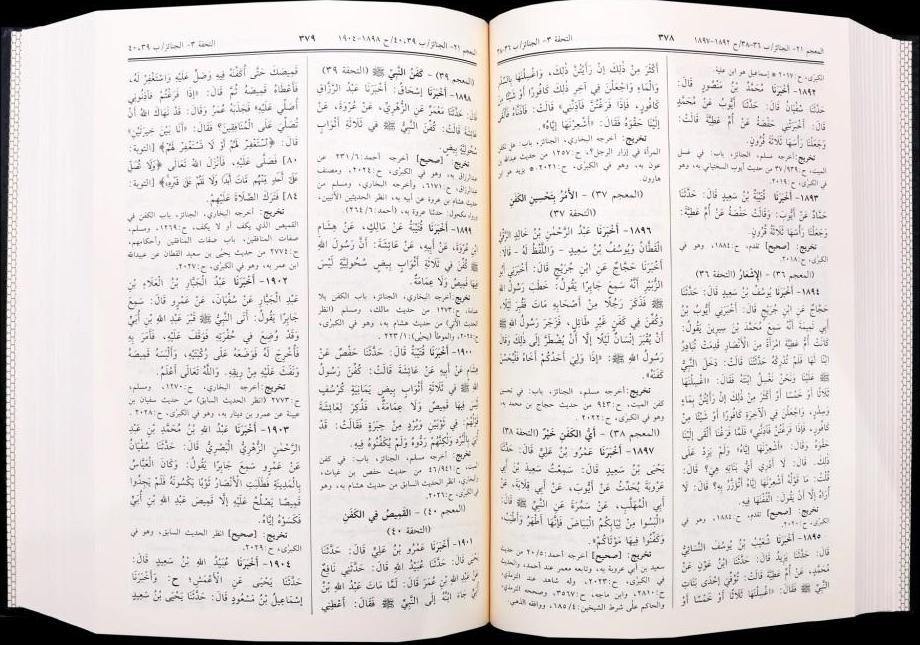 المعجم ٢١- الجنائز/ب ٣٦-٣٨/ح ١٨٩٢-١٨٩٧
٣٧٨
التحفة ٣- الجنائز/ب ٣٦-٣٨
الكبرى، ح:٢٠١٧ * إسماعيل هو ابن علية.
١٨٩٢- أَخْبَرَنَا مُحَمَّدُ بْنُ مَنْصُورٍ قَالَ:
حَدَّثَنَا سُفْيَانُ قَالَ: حَدَّثَنَا أَيُّوبُ عَنْ مُحَمَّدٍ
قَالَ: أَخْبَرَتْنِي حَفْصَةُ عَنْ أُمِّ عَطِيَّةَ قَالَتْ:
وَجَعَلْنَا رَأْسَهَا ثَلَاثَةَ قُرُونٍ.
تخريج: أخرجه مسلم، الجنائز، باب: في غسل
الميت، ح:٣٧/٩٣٩ من حديث أيوب السختياني به، وهو
في الكبرى، ح:٢٠١٩.
١٨٩٣- أَخْبَرَنَا قُتَيْبَةُ بْنُ سَعِيدٍ قَالَ: حَدَّثَنَا
حَمَّادٌ عَنْ أَيُّوبَ: وَقَالَتْ حَفْصَةُ عَنْ أُمِّ عَطِيَّةَ:
وَجَعَلْنَا رَأْسَهَا ثَلَاثَةَ قُرُونٍ.
تخريج: [صحيح] تقدم، ح:١٨٨٤، وهو في
الكبرى، ح:٢٠١٨.
(المعجم ٣٦) - الإِشْعَارُ (التحفة ٣٦)
١٨٩٤- أَخْبَرَنَا يُوسُفُ بْنُ سَعِيدٍ قَالَ: حَدَّثَنَا
حَجَّاجٌ عَنِ ابْنِ جُرَيْجٍ قَالَ: أَخْبَرَنِي أَيُّوبُ بْنُ
أَبِي تَمِيمَةَ أَنَّهُ سَمِعَ مُحَمَّدَ بْنَ سِيرِينَ يَقُولُ:
كَانَتْ أُمُّ عَطِيَّةَ امْرَأَةً مِنَ الْأَنْصَارِ قَدِمَتْ تُبَادِرُ
ابْنًا لَهَا فَلَمْ تُدْرِكْهُ حَدَّثَتْنَا قَالَتْ: دَخَلَ النَّبِيُّ
ﷺ عَلَيْنَا وَنَحْنُ نَغْسِلُ ابْنَتَهُ فَقَالَ: «اغْسِلْنَهَا
ثَلَاثًا أَوْ خَمْسًا أَوْ أَكْثَرَ مِنْ ذَلِكَ إِنْ رَأَيْتُنَّ بِمَاءٍ
وَسِدْرٍ، وَاجْعَلْنَ فِي الْآخِرَةِ كَافُورًا أَوْ شَيْئًا مِنْ
كَافُورٍ، فَإِذَا فَرَغْتُنَّ فَآذِنَّنِي» فَلَمَّا فَرَغْنَا أَلْقَى إِلَيْنَا
حَقْوَهُ وَقَالَ: «أَشْعِرْنَهَا إِيَّاهُ». وَلَمْ يَزِدْ عَلَى
ذَلِكَ. قَالَ: لَا أَدْرِي أَيُّ بَنَاتِهِ هِيَ؟ قَالَ:
قُلْتُ: مَا قَوْلُهُ أَشْعِرْنَهَا إِيَّاهُ أَتُؤَزَّرُ بِهِ؟ قَالَ: لَا
أُرَاهُ إِلَّا أَنْ يَقُولَ: الْفُفْنَهَا فِيهِ.
تخريج: [صحيح] تقدم، ح:١٨٨٤، وهو في
الكبرى، ح:٢٠٢٠.
١٨٩٥- أَخْبَرَنَا شُعَيْبُ بْنُ يُوسُفَ النَّسَائِيُّ
قَالَ: حَدَّثَنَا يَزِيدُ قَالَ: حَدَّثَنَا ابْنُ عَوْنٍ عَنْ
مُحَمَّدٍ، عَنْ أُمِّ عَطِيَّةَ قَالَتْ: تُوُفِّيَ إِحْدَى بَنَاتِ
النَّبِيِّ ﷺ فَقَالَ: «اغْسِلْنَهَا ثَلَاثًا أَوْ خَمْسًا أَوْ
أَكْثَرَ مِنْ ذَلِكَ إِنْ رَأَيْتُنَّ ذَلِكَ، وَاغْسِلْنَهَا بِالسِّدْرِ
وَالْمَاءِ وَاجْعَلْنَ فِي آخِرِ ذَلِكَ كَافُورًا أَوْ شَيْئًا مِنْ
كَافُورٍ، فَإِذَا فَرَغْتُنَّ فَآذِنَّنِي» قَالَتْ: فَآذَنَّاهُ فَأَلْقَى
إِلَيْنَا حَقْوَهُ فَقَالَ: «أَشْعِرْنَهَا إِيَّاهُ».
تخريج: أخرجه البخاري، الجنائز، باب: هل تكفن
المرأة في إزار الرجل؟، ح:١٢٥٧ من حديث عبدالله بن
عون به، وهو في الكبرى، ح:٢٠٢١ * يزيد هو ابن
هارون.
(المعجم ٣٧) - الأَمْرُ بِتَحْسِينِ الْكَفَنِ
(التحفة ٣٧)
١٨٩٦- أَخْبَرَنَا عَبْدُ الرَّحْمَنِ بْنُ خَالِدٍ الرَّقِّيُّ
الْقَطَّانُ وَيُوسُفُ بْنُ سَعِيدٍ - وَاللَّفْظُ لَهُ - قَالَا:
أَخْبَرَنَا حَجَّاجٌ عَنِ ابْنِ جُرَيْجٍ قَالَ: أَخْبَرَنِي أَبُو
الزُّبَيْرِ أَنَّهُ سَمِعَ جَابِرًا يَقُولُ: خَطَبَ رَسُولُ اللهِ
ﷺ فَذَكَرَ رَجُلًا مِنْ أَصْحَابِهِ مَاتَ فَقُبِرَ لَيْلًا،
وَكُفِّنَ فِي كَفَنٍ غَيْرِ طَائِلٍ، فَزَجَرَ رَسُولُ اللهِ ﷺ
أَنْ يُقْبَرَ إِنْسَانٌ لَيْلًا إِلَّا أَنْ يُضْطَرَّ إِلَى ذَلِكَ وَقَالَ
رَسُولُ اللهِ ﷺ: «إِذَا وَلِيَ أَحَدُكُمْ أَخَاهُ فَلْيُحَسِّنْ
كَفَنَهُ».
تخريج: أخرجه مسلم، الجنائز، باب: في تحسين
كفن الميت، ح:٩٤٣ من حديث حجاج بن محمد به،
وهو في الكبرى، ح:٢٠٢٢.
(المعجم ٣٨) - أَيُّ الْكَفَنِ خَيْرٌ (التحفة ٣٨)
١٨٩٧- أَخْبَرَنَا عَمْرُو بْنُ عَلِيٍّ قَالَ: حَدَّثَنَا
يَحْيَى بْنُ سَعِيدٍ قَالَ: سَمِعْتُ سَعِيدَ بْنَ أَبِي
عَرُوبَةَ يُحَدِّثُ عَنْ أَيُّوبَ، عَنْ أَبِي قِلَابَةَ، عَنْ
أَبِي الْمُهَلَّبِ، عَنْ سَمُرَةَ عَنِ النَّبِيِّ ﷺ قَالَ:
«الْبَسُوا مِنْ ثِيَابِكُمُ الْبَيَاضَ فَإِنَّهَا أَطْهَرُ وَأَطْيَبُ،
وَكَفِّنُوا فِيهَا مَوْتَاكُمْ».
تخريج: [صحيح] أخرجه أحمد:٥/٢٠ من حديث
سعيد بن أبي عروبة به، وتابعه معمر عند أحمد، والحديث
في الكبرى، ح:٢٠٢٣، وله شاهد عند الترمذي،
ح:٢٨١٠، وابن ماجه، ح:٣٥٦٧، وصححه الترمذي،
والحاكم على شرط الشيخين:٤/١٨٥، ووافقه الذهبي.
المعجم ٢١- الجنائز/ب ٣٩، ٤٠/ح ١٨٩٨-١٩٠٤
٣٧٩
التحفة ٣- الجنائز/ب ٣٩، ٤٠
(المعجم ٣٩) - كَفَنُ النَّبِيِّ ﷺ (التحفة ٣٩)
١٨٩٨- أَخْبَرَنَا إِسْحَاقُ: أَخْبَرَنَا عَبْدُ الرَّزَّاقِ
حَدَّثَنَا مَعْمَرٌ عَنِ الزُّهْرِيِّ، عَنْ عُرْوَةَ، عَنْ
عَائِشَةَ قَالَتْ: كُفِّنَ النَّبِيُّ ﷺ فِي ثَلَاثَةِ أَثْوَابٍ
سُحُولِيَّةٍ بِيضٍ.
تخريج: [صحيح] أخرجه أحمد:٦/٢٣١ عن
عبدالرزاق به، وهو في الكبرى، ح:٢٠٢٤، ومصنف
عبدالرزاق، ح:٦١٧١، وأخرجه البخاري، ومسلم من
حديث هشام بن عروة عن أبيه به، انظر الحديثين الآتيين،
ورواه مكحول: حدثنا عروة به، (أحمد:٦/٢٦٤).
١٨٩٩- أَخْبَرَنَا قُتَيْبَةُ عَنْ مَالِكٍ، عَنْ هِشَامِ
ابْنِ عُرْوَةَ، عَنْ أَبِيهِ، عَنْ عَائِشَةَ: أَنَّ رَسُولَ اللهِ
ﷺ كُفِّنَ فِي ثَلَاثَةِ أَثْوَابٍ بِيضٍ سُحُولِيَّةٍ لَيْسَ
فِيهَا قَمِيصٌ وَلَا عِمَامَةٌ.
تخريج: أخرجه البخاري، الجنائز، باب الكفن بلا
عمامة، ح:١٢٧٣ من حديث مالك، ومسلم (انظر
الحديث الآتي) من حديث هشام به، وهو في الكبرى،
ح:٢٠٢٥، والموطأ (يحيى):١/٢٢٣.
١٩٠٠- أَخْبَرَنَا قُتَيْبَةُ قَالَ: حَدَّثَنَا حَفْصٌ عَنْ
هِشَامٍ عَنْ أَبِيهِ عَنْ عَائِشَةَ قَالَتْ: كُفِّنَ رَسُولُ
اللهِ ﷺ فِي ثَلَاثَةِ أَثْوَابٍ بِيضٍ يَمَانِيَةٍ كُرْسُفٍ
لَيْسَ فِيهَا قَمِيصٌ وَلَا عِمَامَةٌ، فَذُكِرَ لِعَائِشَةَ
قَوْلُهُمْ: فِي ثَوْبَيْنِ وَبُرْدٍ مِنْ حِبَرَةٍ فَقَالَتْ: قَدْ
أُتِيَ بِالْبُرْدِ وَلَكِنَّهُمْ رَدُّوهُ وَلَمْ يُكَفِّنُوهُ فِيهِ.
تخريج: أخرجه مسلم، الجنائز، باب: في كفن
الميت، ح:٤٦/٩٤١ من حديث حفص بن غياث،
والبخاري، انظر الحديث السابق من حديث هشام به، وهو
في الكبرى، ح:٢٠٢٦.
(المعجم ٤٠) - الْقَمِيصُ فِي الْكَفَنِ
(التحفة ٤٠)
١٩٠١- أَخْبَرَنَا عَمْرُو بْنُ عَلِيٍّ قَالَ: حَدَّثَنَا
يَحْيَى قَالَ: حَدَّثَنَا عُبَيْدُ اللهِ قَالَ: حَدَّثَنِي نَافِعٌ
عَنْ عَبْدِ اللهِ بْنِ عُمَرَ قَالَ: لَمَّا مَاتَ عَبْدُ اللهِ بْنُ
أُبَيٍّ جَاءَ ابْنُهُ إِلَى النَّبِيِّ ﷺ فَقَالَ: أَعْطِنِي
قَمِيصَكَ حَتَّى أُكَفِّنَهُ فِيهِ وَصَلِّ عَلَيْهِ وَاسْتَغْفِرْ لَهُ،
فَأَعْطَاهُ قَمِيصَهُ ثُمَّ قَالَ: «إِذَا فَرَغْتُمْ فَآذِنُونِي
أُصَلِّي عَلَيْهِ» فَجَذَبَهُ عُمَرُ وَقَالَ: قَدْ نَهَاكَ اللهُ أَنْ
تُصَلِّيَ عَلَى الْمُنَافِقِينَ؟ فَقَالَ: «أَنَا بَيْنَ خِيرَتَيْنِ»
قَالَ: ﴿اسْتَغْفِرْ لَهُمْ أَوْ لَا تَسْتَغْفِرْ لَهُمْ﴾ [التوبة:
٨٠] فَصَلَّى عَلَيْهِ، فَأَنْزَلَ اللهُ تَعَالَى ﴿وَلَا تُصَلِّ
عَلَى أَحَدٍ مِنْهُمْ مَاتَ أَبَدًا وَلَا تَقُمْ عَلَى قَبْرِهِ﴾ [التوبة:
٨٤] فَتَرَكَ الصَّلَاةَ عَلَيْهِمْ.
تخريج: أخرجه البخاري، الجنائز، باب الكفن في
القميص الذي يكف أو لا يكف، ح:١٢٦٩، ومسلم،
صفات المنافقين، باب صفات المنافقين وأحكامهم،
ح:٢٧٧٤ من حديث يحيى بن سعيد القطان عن عبيدالله
ابن عمر به، وهو في الكبرى، ح:٢٠٢٧.
١٩٠٢- أَخْبَرَنَا عَبْدُ الْجَبَّارِ بْنُ الْعَلَاءِ بْنِ
عَبْدِ الْجَبَّارِ عَنْ سُفْيَانَ، عَنْ عَمْرٍو قَالَ: سَمِعَ
جَابِرًا يَقُولُ: أَتَى النَّبِيُّ ﷺ قَبْرَ عَبْدِ اللهِ بْنِ أُبَيٍّ
وَقَدْ وُضِعَ فِي حُفْرَتِهِ فَوَقَفَ عَلَيْهِ، فَأَمَرَ بِهِ
فَأُخْرِجَ لَهُ فَوَضَعَهُ عَلَى رُكْبَتَيْهِ، وَأَلْبَسَهُ قَمِيصَهُ
وَنَفَثَ عَلَيْهِ مِنْ رِيقِهِ. وَاللهُ تَعَالَى أَعْلَمُ.
تخريج: أخرجه البخاري، ح:١٢٧٠، ومسلم،
ح:٢٧٧٣ (انظر الحديث السابق) من حديث سفيان بن
عيينة عن عمرو بن دينار به، وهو في الكبرى، ح:٢٠٢٨.
١٩٠٣- أَخْبَرَنَا عَبْدُ اللهِ بْنُ مُحَمَّدِ بْنِ عَبْدِ
الرَّحْمَنِ الزُّهْرِيُّ الْبَصْرِيُّ قَالَ: حَدَّثَنَا سُفْيَانُ
عَنْ عَمْرٍو سَمِعَ جَابِرًا يَقُولُ: وَكَانَ الْعَبَّاسُ
بِالْمَدِينَةِ فَطَلَبَتِ الْأَنْصَارُ ثَوْبًا يَكْسُونَهُ فَلَمْ يَجِدُوا
قَمِيصًا يَصْلُحُ عَلَيْهِ إِلَّا قَمِيصَ عَبْدِ اللهِ بْنِ أُبَيٍّ
فَكَسَوْهُ إِيَّاهُ.
تخريج: [صحيح] انظر الحديث السابق، وهو في
الكبرى، ح:٢٠٢٩.
١٩٠٤- أَخْبَرَنَا عُبَيْدُ اللهِ بْنُ سَعِيدٍ قَالَ:
حَدَّثَنَا يَحْيَى عَنِ الْأَعْمَشِ؛ ح: وَأَخْبَرَنَا
إِسْمَاعِيلُ بْنُ مَسْعُودٍ قَالَ: حَدَّثَنَا يَحْيَى بْنُ سَعِيدٍ